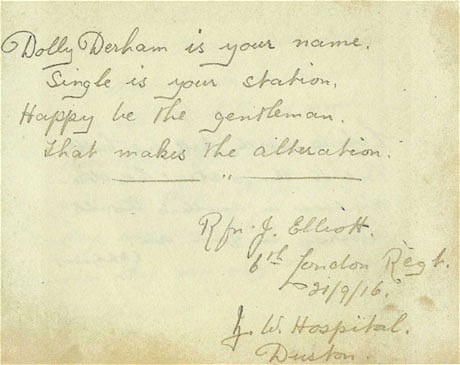 Dolly Derham is your name.
Single is your station.
Happy be the gentleman.
that makes the alteration.
"
Rfn. J. Elliott.
6th London Regt.
21/9/16.
W. Hospital.
Duston.